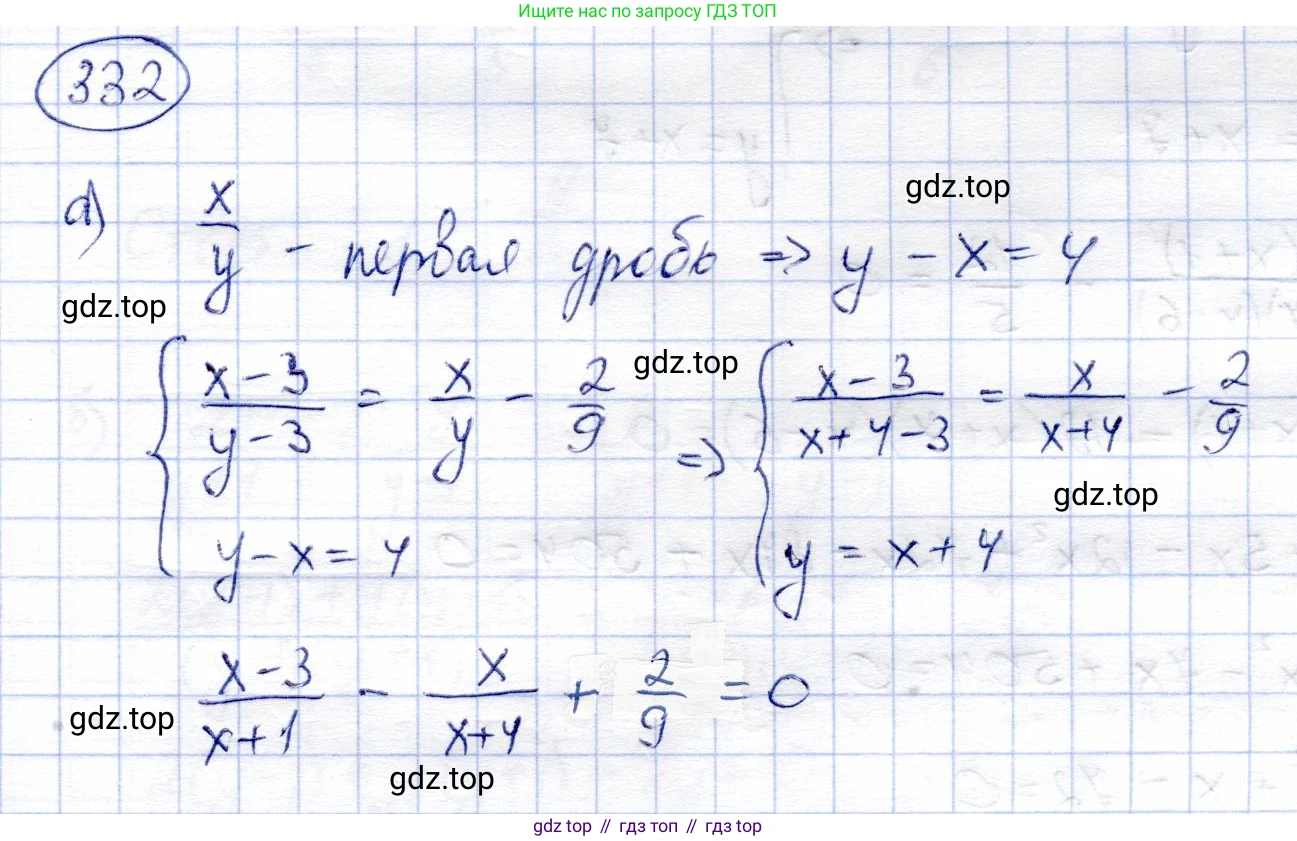 Ищите нас по запросу ГДЗ ТОП
332
а) x/y - первая дробь => y - x = 4
gdz.top
gdz.top
{ (x-3)/(y-3) = x/y - 2/9 => { (x-3)/(x+4-3) = x/(x+4) - 2/9
gdz.top
gdz.top
y-x=4 y = x+4
(x-3)/(x+1) - x/(x+4) + 2/9 = 0
gdz.top
gdz.top
gdz top // гдз топ // гдз top